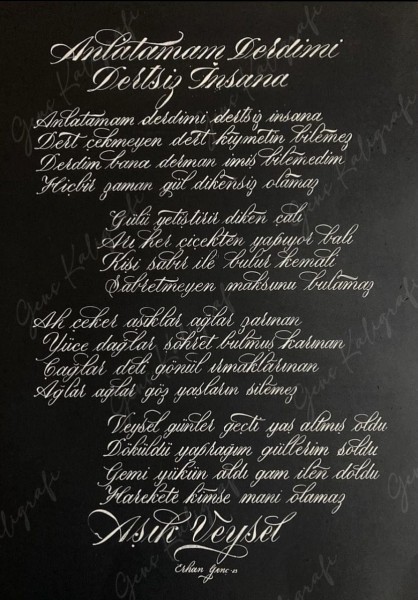 Anlatamam Derdimi
Dertsiz İnsana
Anlatamam derdimi dertsiz insana
Dert çekmeyen dert kıymetin bilemez
Derdim bana derman imiş bilemedim
Hiçbir zaman gül dikensiz olamaz
Gülü yetiştirir diken çalı
Arı her çiçekten yapıyor balı
Kişi sabır ile bulur kemali
Sabretmeyen maksunu bulamaz
Ah çeker aşıklar ağlar zarınan
Yüce dağlar şöhret bulmuş karınan
Çağlar deli gönül ırmaklarınan
Ağlar ağlar göz yaşların silemez
Veysel günler geçti yaş altmış oldu
Döküldü yaprağım güllerim soldu
Gemi yükün aldı gam ilen doldu
Harekete kimse mani olamaz
Aşık Veysel
Erhan Genç
Genç Kaligrafi